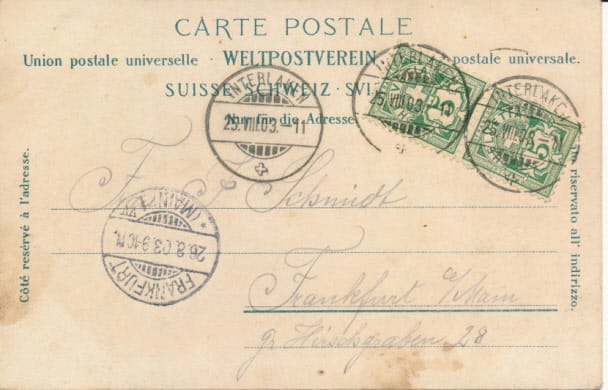 CARTE POSTALE
Union postale universelle · WELTPOSTVEREIN postale universale.
SUISSE · SCHWEIZ · SVIZ
Nur für die Adresse
Côté reservé à l'adresse.
riservato all' indirizzo.
INTERLAKEN
25.VIII.03.-11
INTERLAKEN
25.VIII.03.-11
INTERLAKEN
25.VIII.03.-11
5
5
FRANKFURT (MAIN)
26.8.03.9-10
Schmidt
Frankfurt a/Main
gr Hirschgraben 28